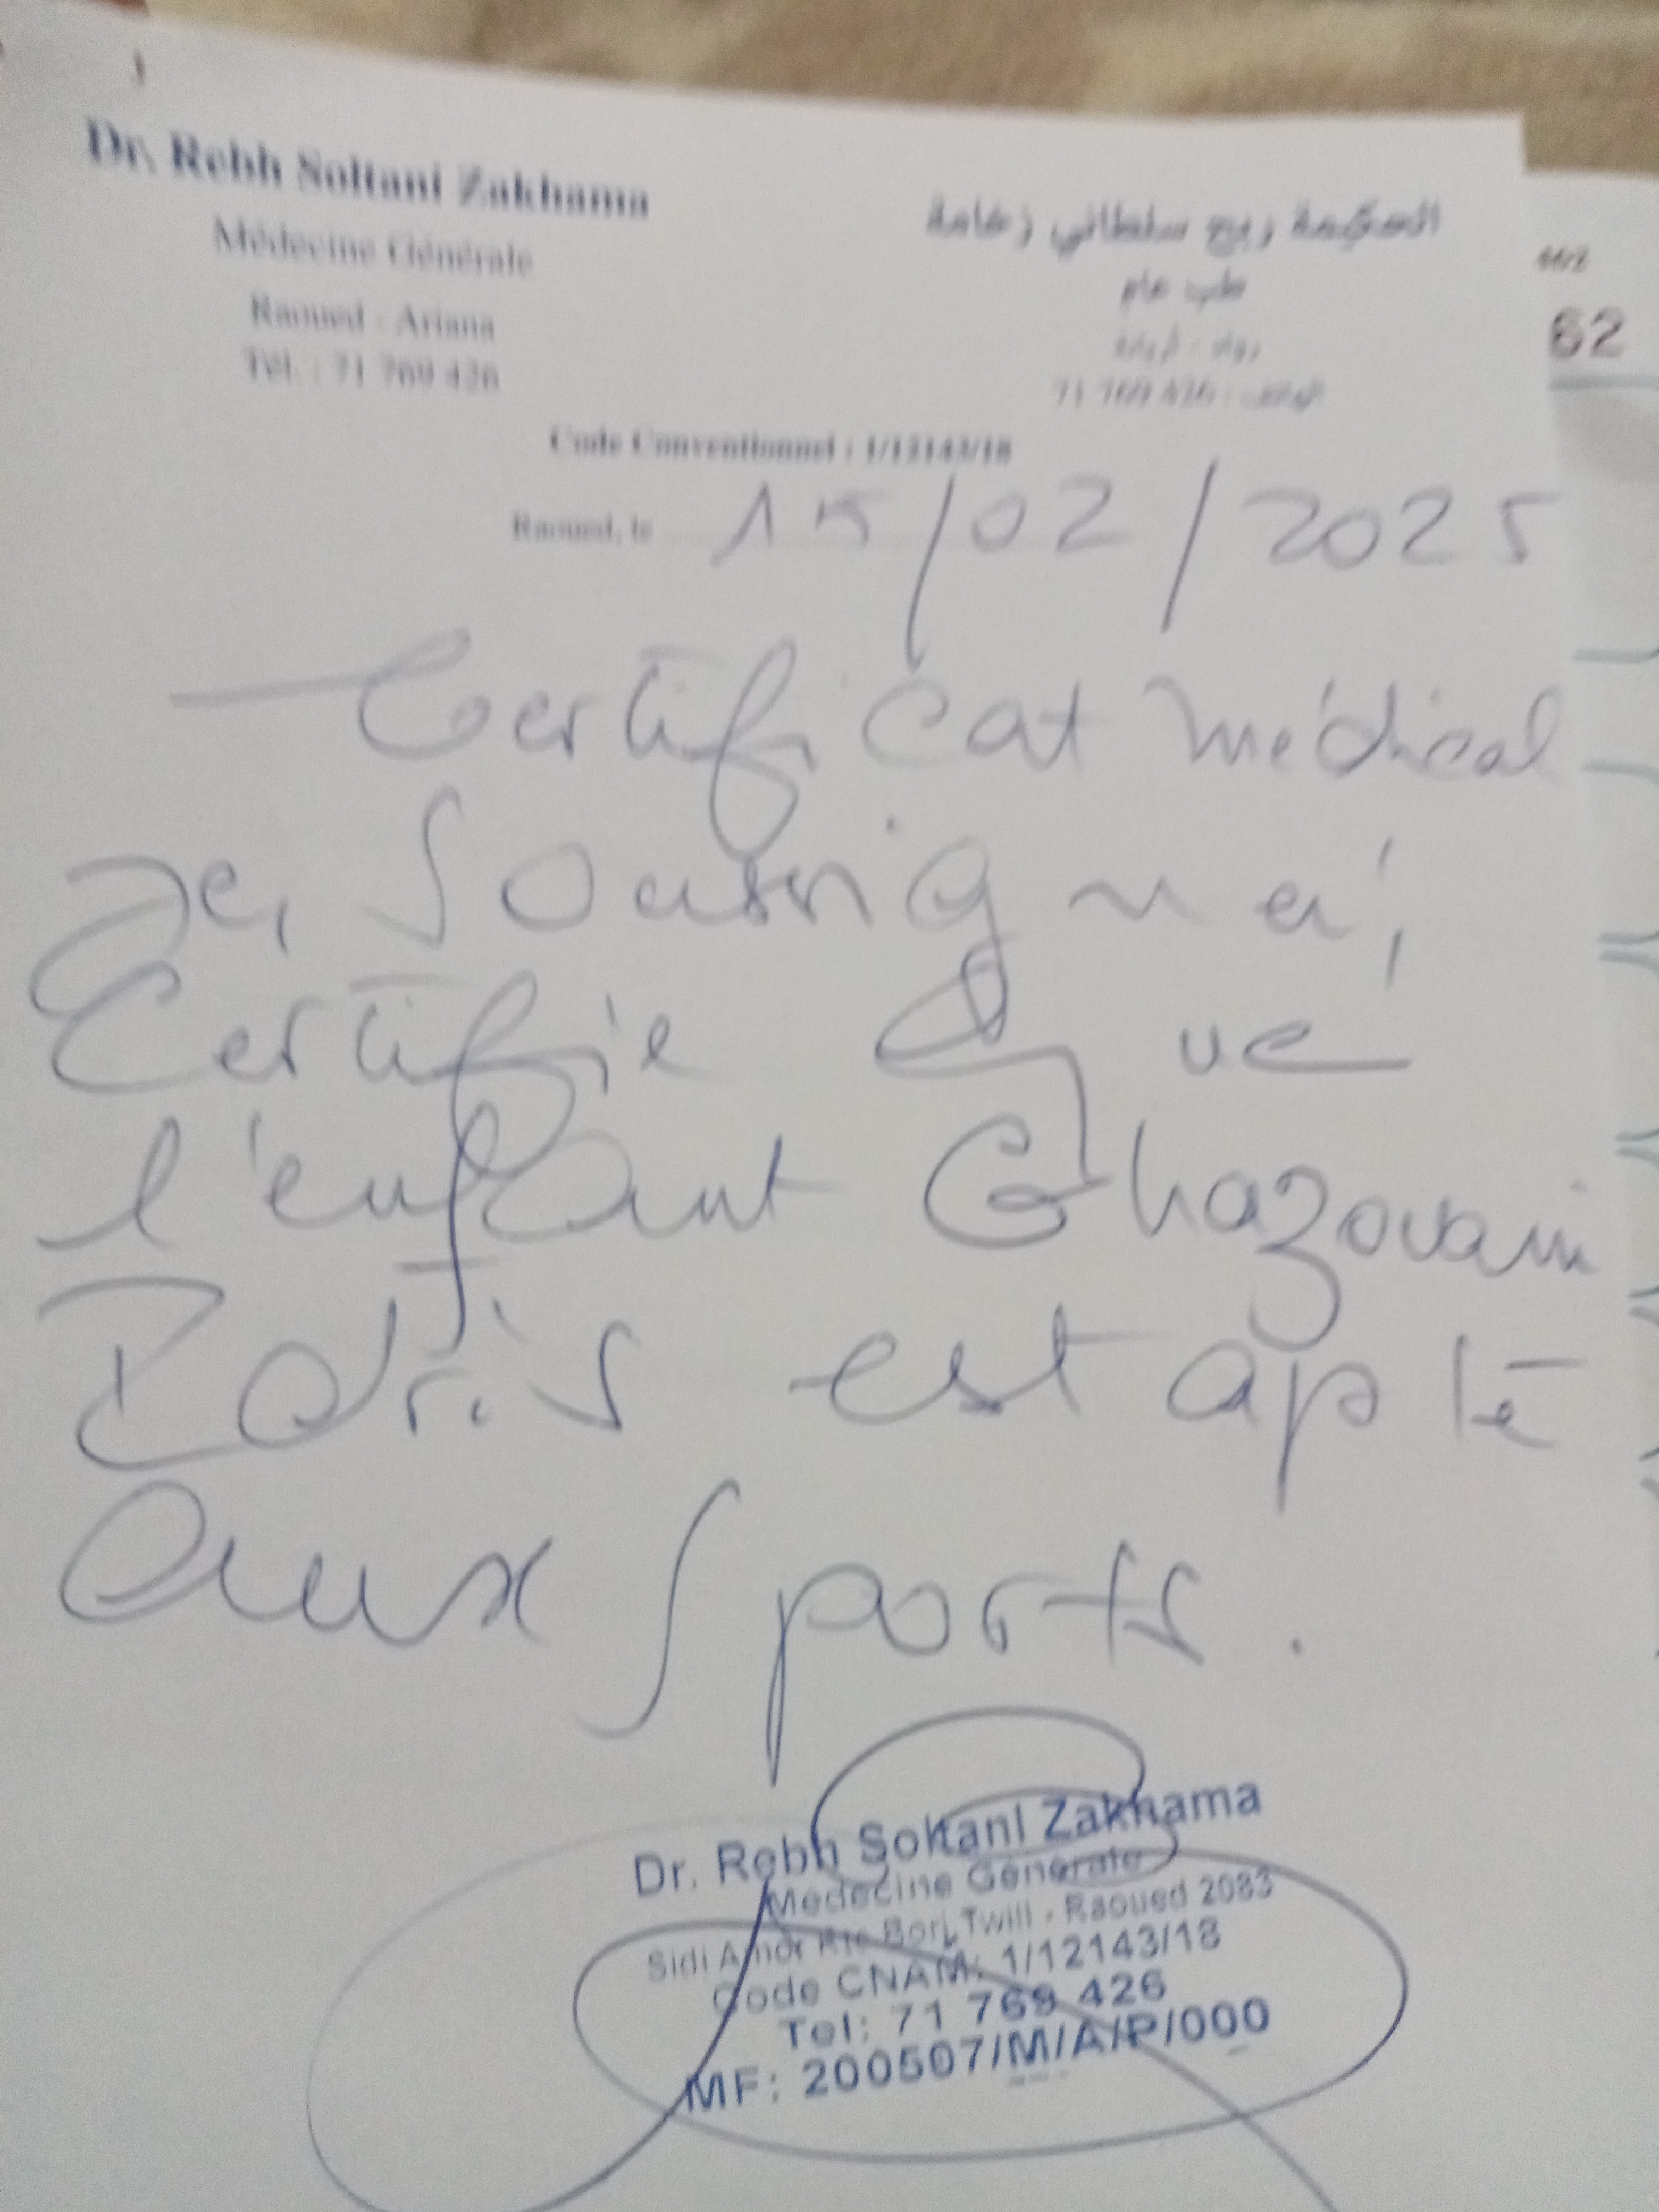 Dr. Rebh Soltani Zakhama
Médecine Générale
Raoued - Ariana
Tél. : 71 769 426
الحكيمة ربح سلطاني زخامة
طب عام
رواد - أريانة
الهاتف : 71 769 426
Code Conventionnel : 1/12143/18
Raoued, le 15/02/2025
Certificat médical
Je, Soussigné,
Certifie que
l'enfant Ghazouani
Idris est apte
aux Sports.
Dr. Rebh Soltani Zakhama
Médecine Générale
Sidi Amor Rte Borj Twill - Raoued 2083
Code CNAM: 1/12143/18
Tel: 71 769 426
MF: 200507/M/A/P/000
62